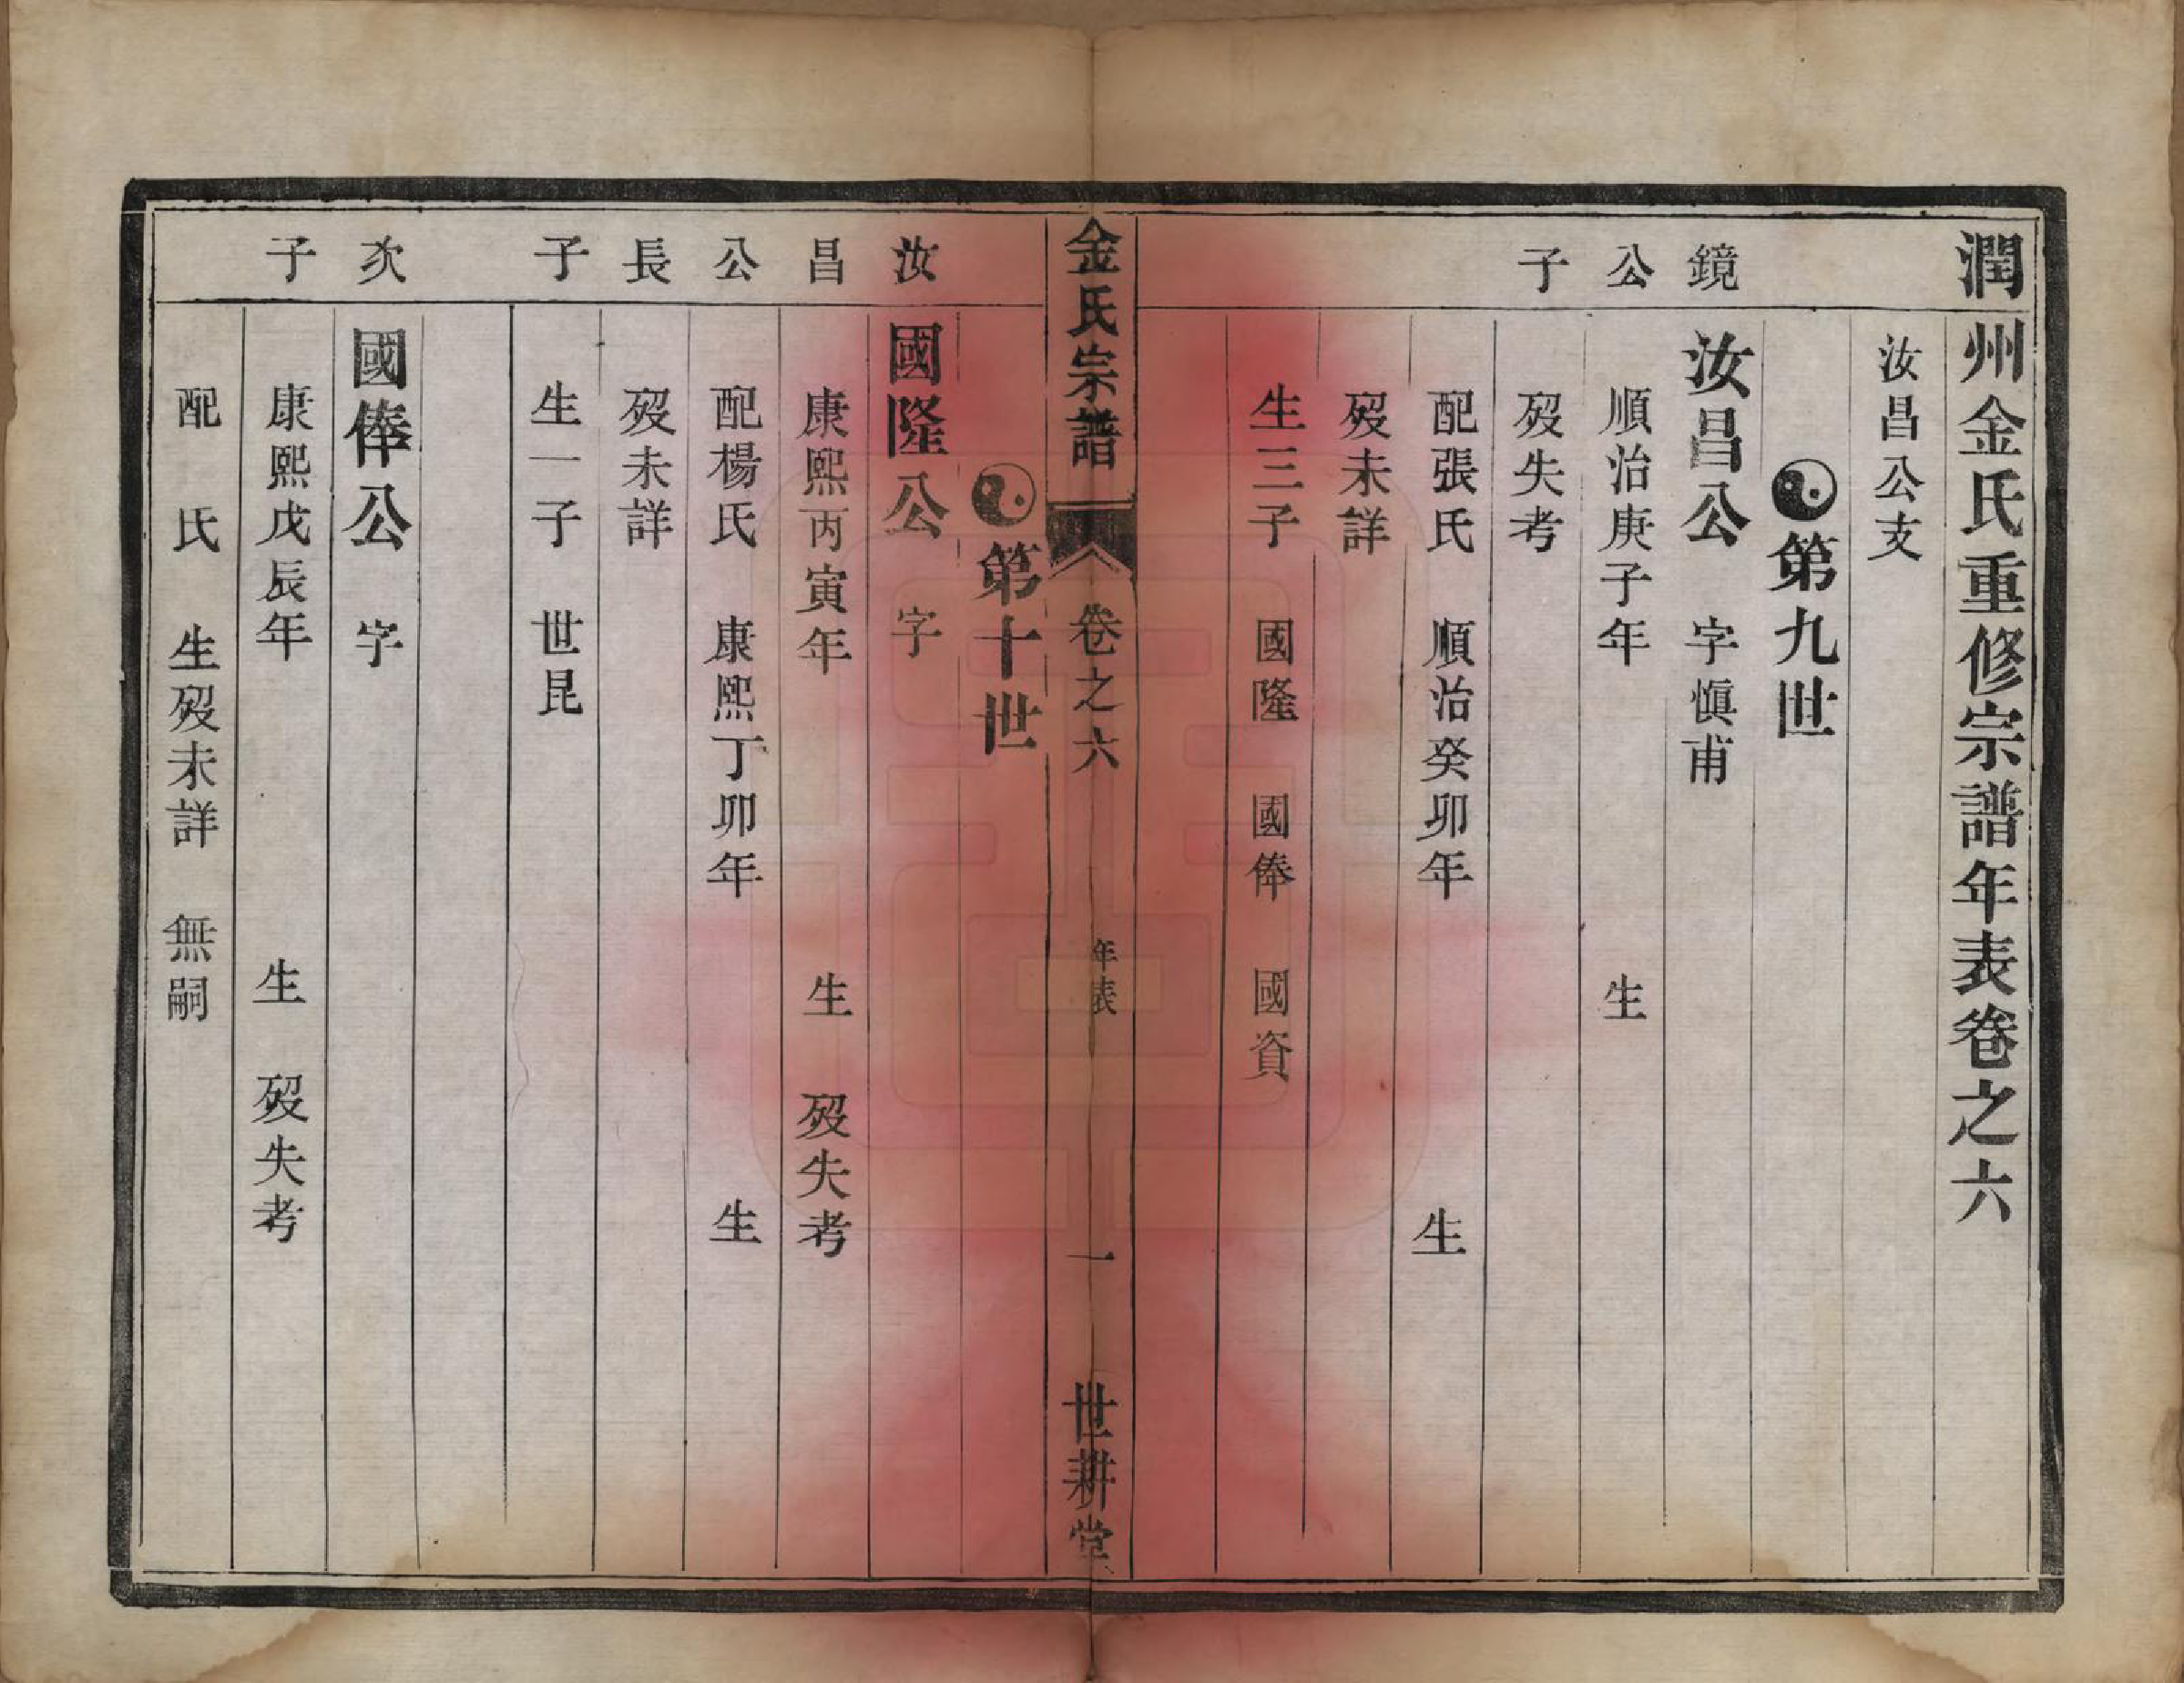 潤州金氏重修宗譜年表卷之六
汝昌公支
第九世
鏡公子
汝昌公　字慎甫
順治庚子年　生
歿失考
配張氏　順治癸卯年　生
歿未詳
生三子　國隆　國俸　國資
金氏宗譜　卷之六　年表　一　世耕堂
第十世
汝昌公長子
國隆公　字
康熙丙寅年　生　歿失考
配楊氏　康熙丁卯年　生
歿未詳
生一子　世昆
次子
國俸公　字
康熙戊辰年　生　歿失考
配　氏　生歿未詳　無嗣